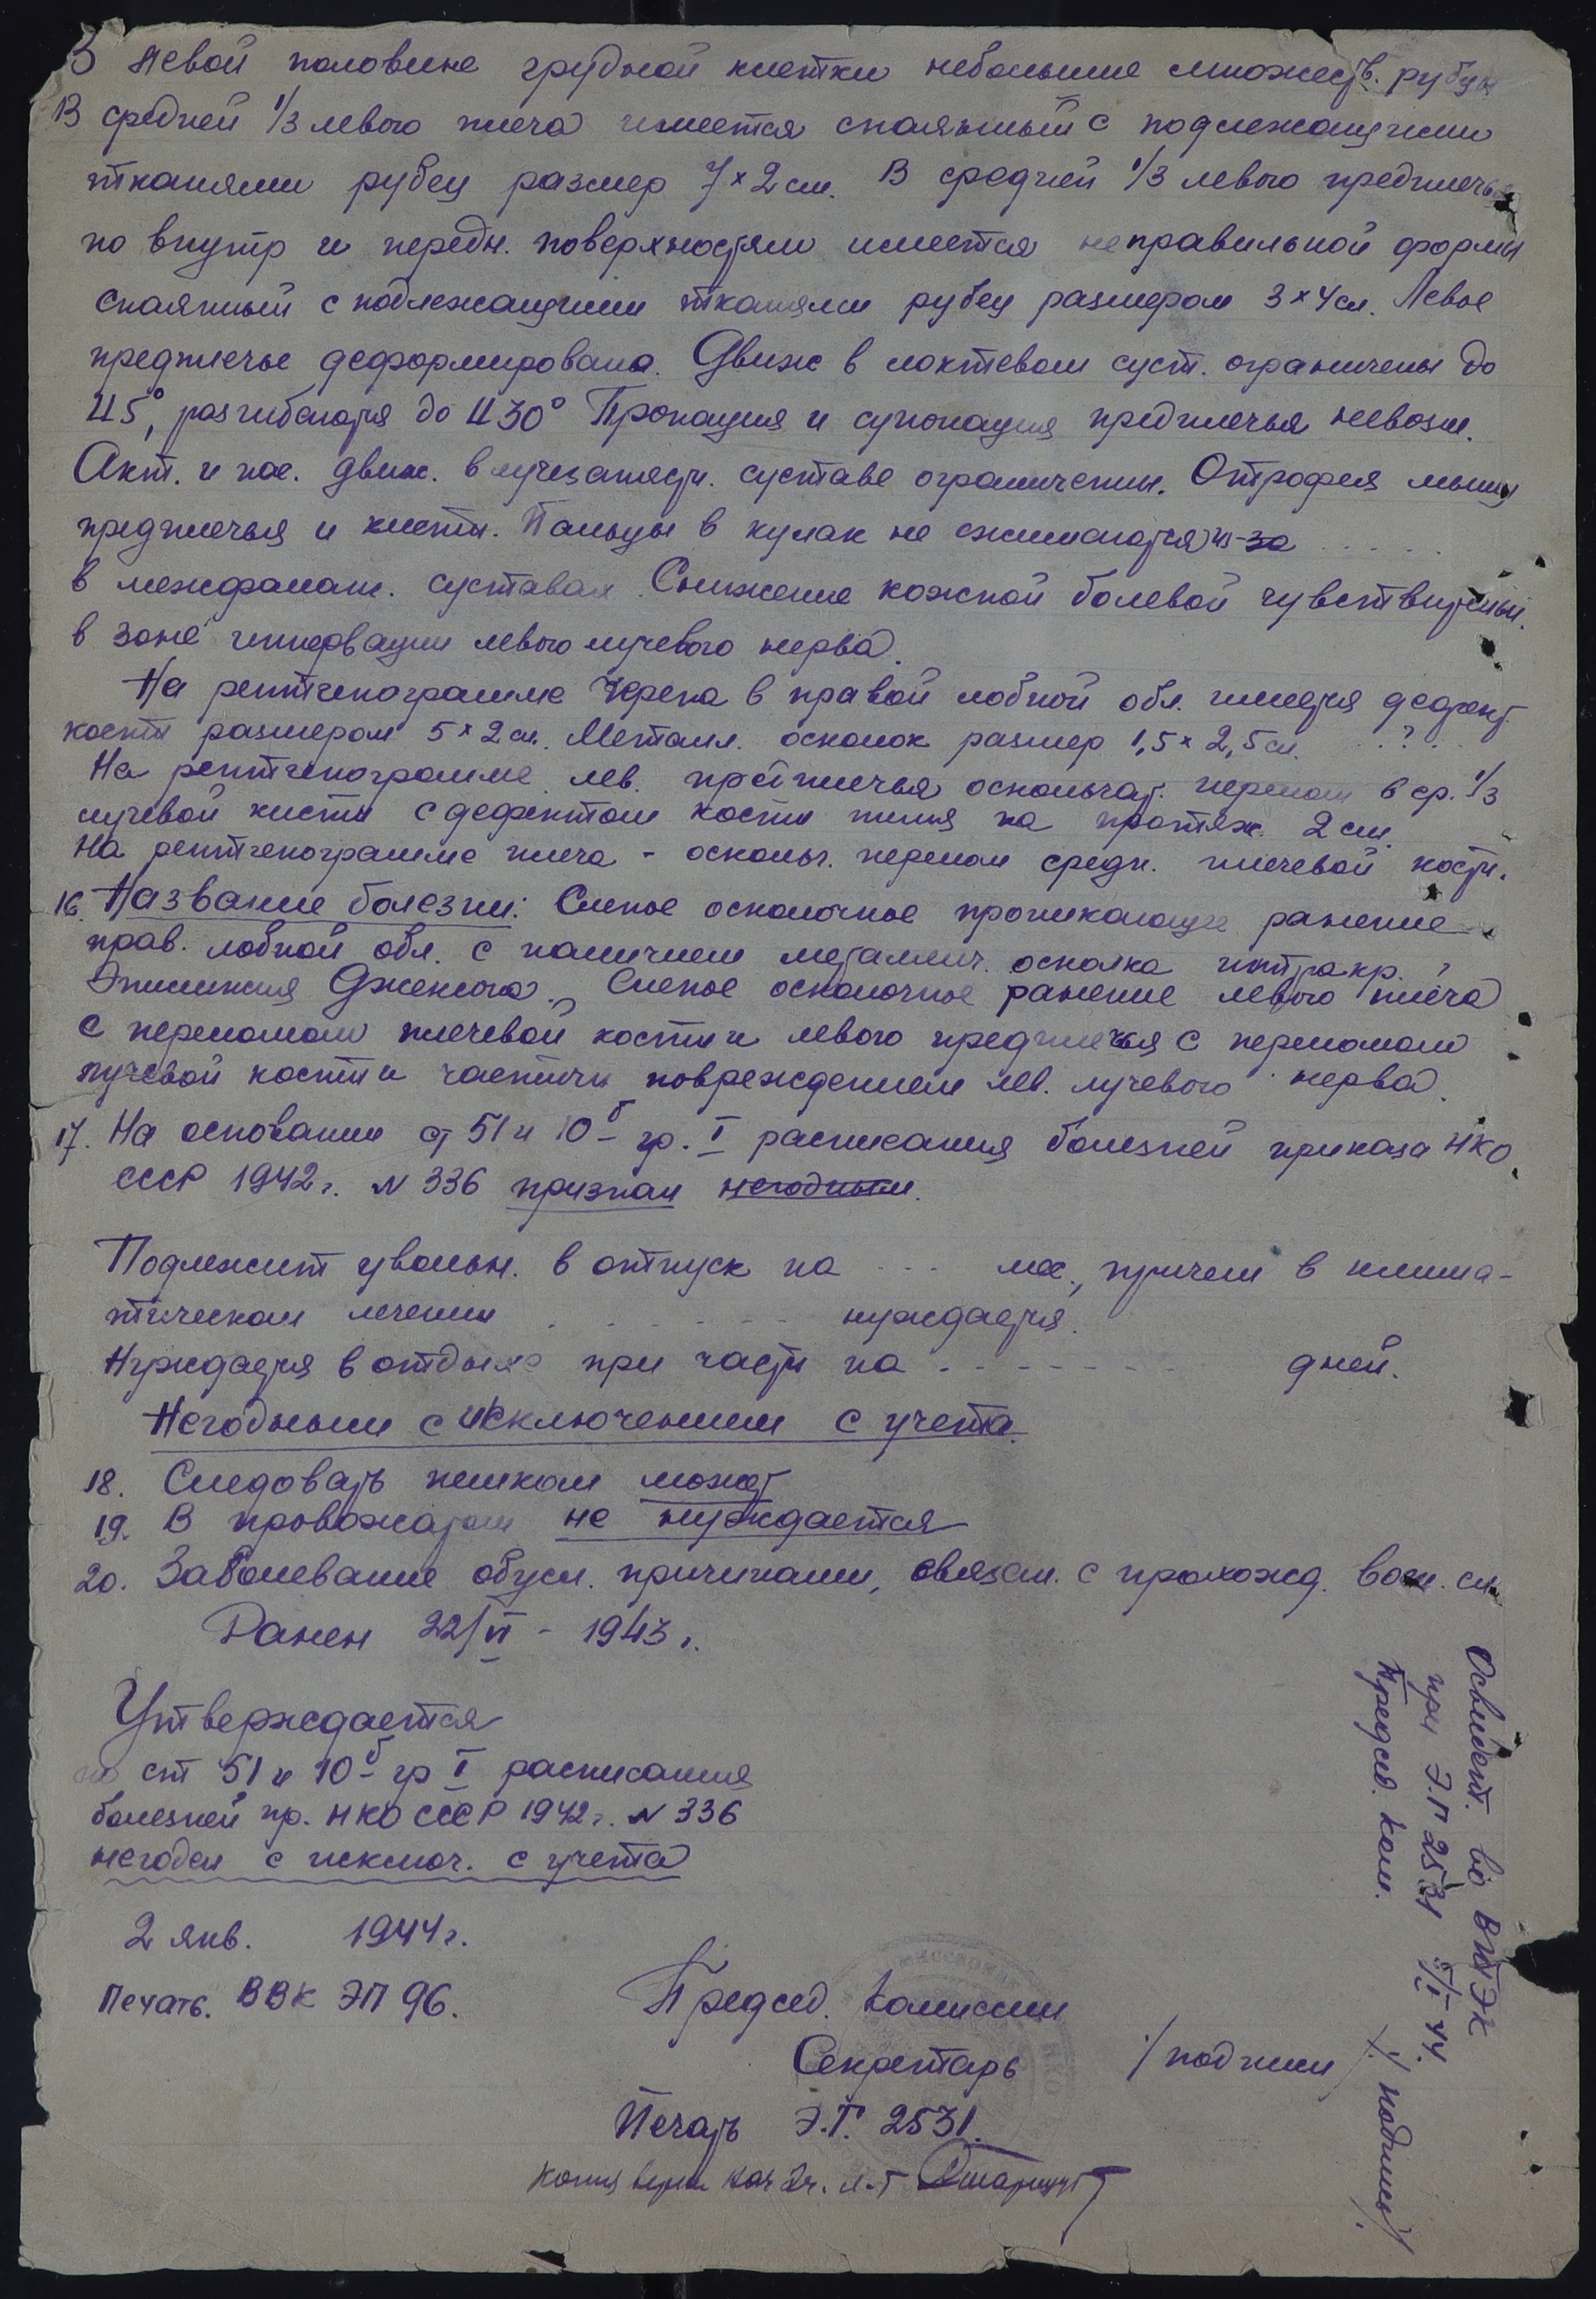 В левой половине грудной клетки небольшие множеств. рубцы
В средней 1/3 левого плеча имеется спаянный с подлежащими
тканями рубец размер 7×2 см. В средней 1/3 левого предплечья
по внутр и передн. поверхностям имеется неправильной формы
спаянный с подлежащими тканями рубец размером 3×4 см. Левое
предплечье деформировано. Движ в локтевом суст. ограничены до
45°, разгибается до 430° Пронация и супонация предплечья невозм.
Акт. и пас. движ. в лучезапястн. суставе ограничены. Отрофия мышц
предплечья и кисти. Пальцы в кулак не сжимаются из-за .....
в межфаланг. суставах. Снижение кожной болевой чувствительн.
в зоне иннервации левого лучевого нерва.
На рентгенограмме черепа в правой лобной обл. имеется дефект
кости размером 5×2 см. Металл. осколок размер 1,5×2,5 см. ..?..
На рентгенограмме лев. предплечья оскольчат. перелом в ср. 1/3
лучевой кисти с дефектом кости на протяж. 2 см.
На рентгенограмме плеча - оскольч. перелом средн. плечевой кости.
16. Название болезни: Слепое осколочное проникающее ранение
прав. лобной обл. с наличием металлич. осколка интракр.
Эпилепсия Дженсона. Слепое осколочное ранение левого плеча
с переломом плечевой кости и левого предплечья с переломом
лучевой кости и частичн повреждением лев. лучевого нерва.
17. На основании ст 51 и 10б гр. I расписания болезней приказа НКО
СССР 1942 г. N 336 признан негодным.
Подлежит увольн. в отпуск на ... мес., причем в клима-
тическом лечении ....... нуждается.
Нуждается в отдыхе при части на ........ дней.
Негодным с исключением с учета.
18. Следовать пешком может
19. В провожатом не нуждается
20. Заболевание обусл. причинами, связан. с прохожд. воен. сл.
Ранен 22/VI - 1943 г.
Утверждается
по ст 51 и 10б гр I расписания
болезней пр. НКО СССР 1942 г. N 336
негоден с исключ. с учета
2 янв. 1944 г.
Печать. ВВК ЭП 96.
Председ. Комиссии
Секретарь /подписи/
Печать Э.Г. 2531.
Копия верна Нач
Освидет. во ВТЭК
при Э.П 2531 5/I-44.
Председ. Ком. /подпись/.